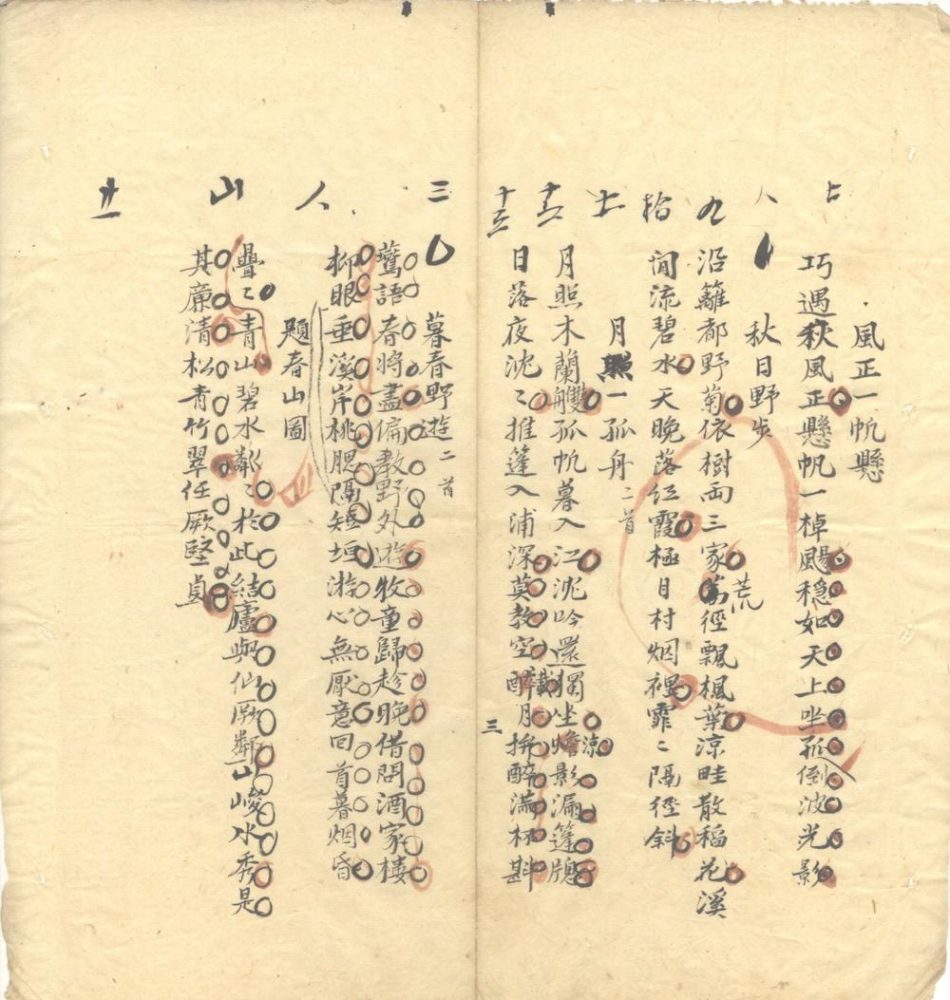 七
風正一帆懸
巧遇秋風正懸帆一棹颺穩如天上坐孤倒波光影
八
秋日野步
九
沿籬都野菊依樹兩三家荒徑飄楓葉涼畦散稻花溪
拾
間流碧水天晚落紅霞極目村烟裡霏〻隔徑斜
十一
月照一孤舟二首
十二
月照木蘭雙孤帆暮入江沈吟還獨坐蟾影漏篷牕
涼
十三
日落夜沈〻推篷入浦深莫教空載月拚醉滿杯斟
三
三
暮春野遊二首
鶯語春將盡偏教野外遊牧童歸趁晚借問酒家樓
人
柳眼垂溪岸桃腮隔短垣游心無厭意回首暮烟昏
題春山圖
山
疊〻青山碧水粼〻於此結廬與仙厥鄰山峻水秀是
廿一
其廉清松青竹翠任厥堅貞